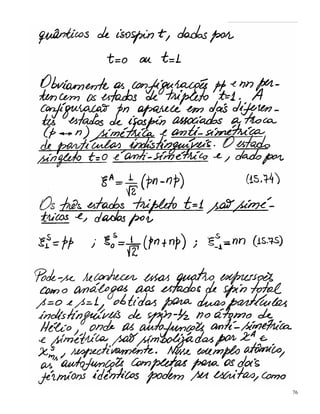 quânticos de isospin t, dados por
t=0 ou t=1
Obviamente as configurações pp e nn per-
tencem aos estados de tripleto t=1. A
configuração pn aparece em dois diferen-
tes estados de isospin associados à troca
(p→n) simétrica e anti-simétrica
de partículas indistinguíveis. O estado
singleto t=0 é anti-simétrico e, dado por
ξᴬ = 1/√2 (pn-np) (15.74)
Os três estados tripleto t=1 são simé-
tricos e, dados por
ξ₁ˢ = pp ; ξ₀ˢ = 1/√2 (pn+np) ; ξ₋₁ˢ = nn (15.75)
Pode-se reconhecer essas quatro expressões
como análogas aos estados de spin total
s=0 e s=1, obtidas para duas partículas
indistinguíveis de spin-½ no átomo de
Hélio, onde as autofunções anti-simétrica
e simétrica são simbolizadas por χᴬ e
χˢₘₛ, respectivamente. Nesse exemplo atômico,
as autofunções completas para os dois
férmions idênticos podem ser escritas, como
76